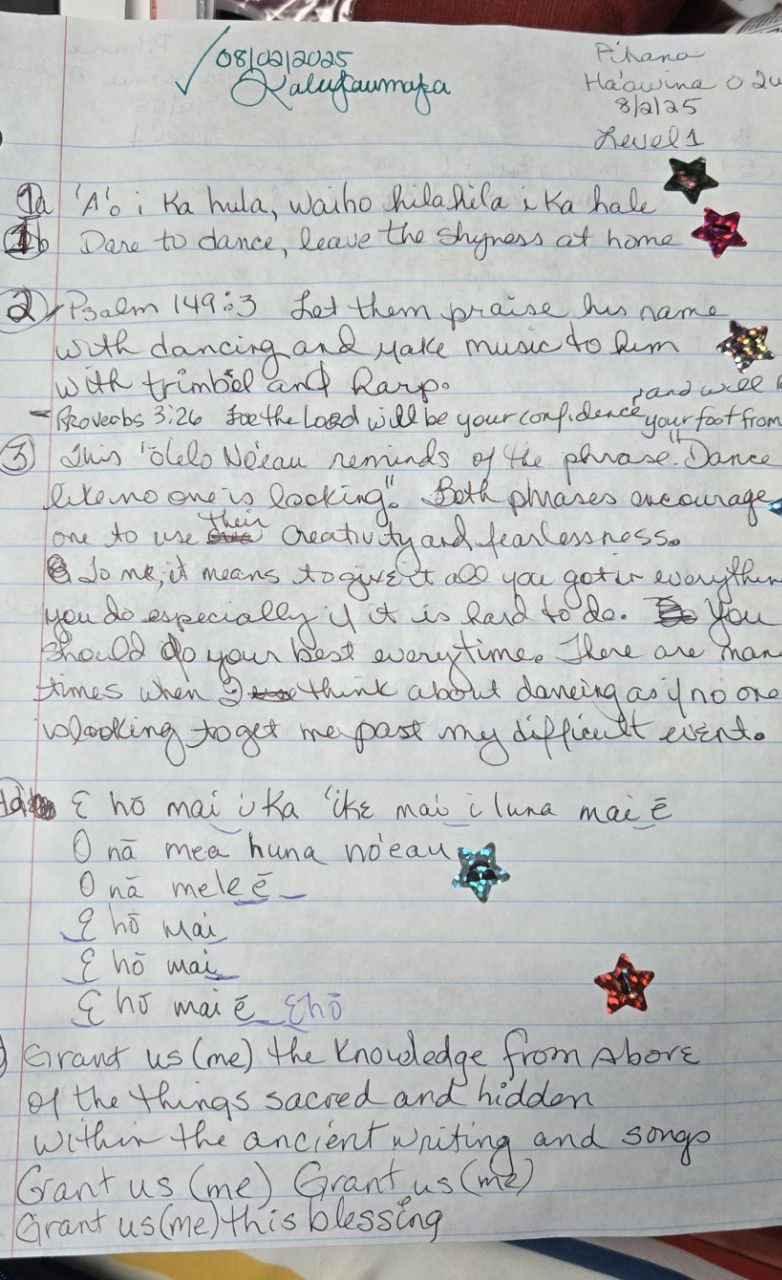 08/02/2025
Pihana
Ha'awina O 2
8/2/25
Level 1
1a 'A'o i Ka hula, waiho hilahila i Ka hale
1b Dare to dance, leave the shyness at home
2 Psalm 149:3 Let them praise his name
with dancing and make music to him
with trimbel and harp.
- Proverbs 3:26 For the Lord will be your confidence, and will
your foot from
3 This 'ōlelo No'eau reminds of the phrase "Dance
like no one is looking". Both phrases encourage
one to use their creativity and fearlessness.
To me, it means to give it all you got in everythin
you do especially if it is hard to do. You
should do your best everytime. There are man
times when I think about dancing as if no one
is looking to get me past my difficult event.
E hō mai i Ka 'ike mai i luna mai ē
O nā mea huna no'eau
O nā mele ē
E hō mai
E hō mai
E hō mai ē Ehō
Grant us (me) the Knowledge from Above
of the things sacred and hidden
within the ancient writing and songs
Grant us (me) Grant us (me)
Grant us (me) this blessing